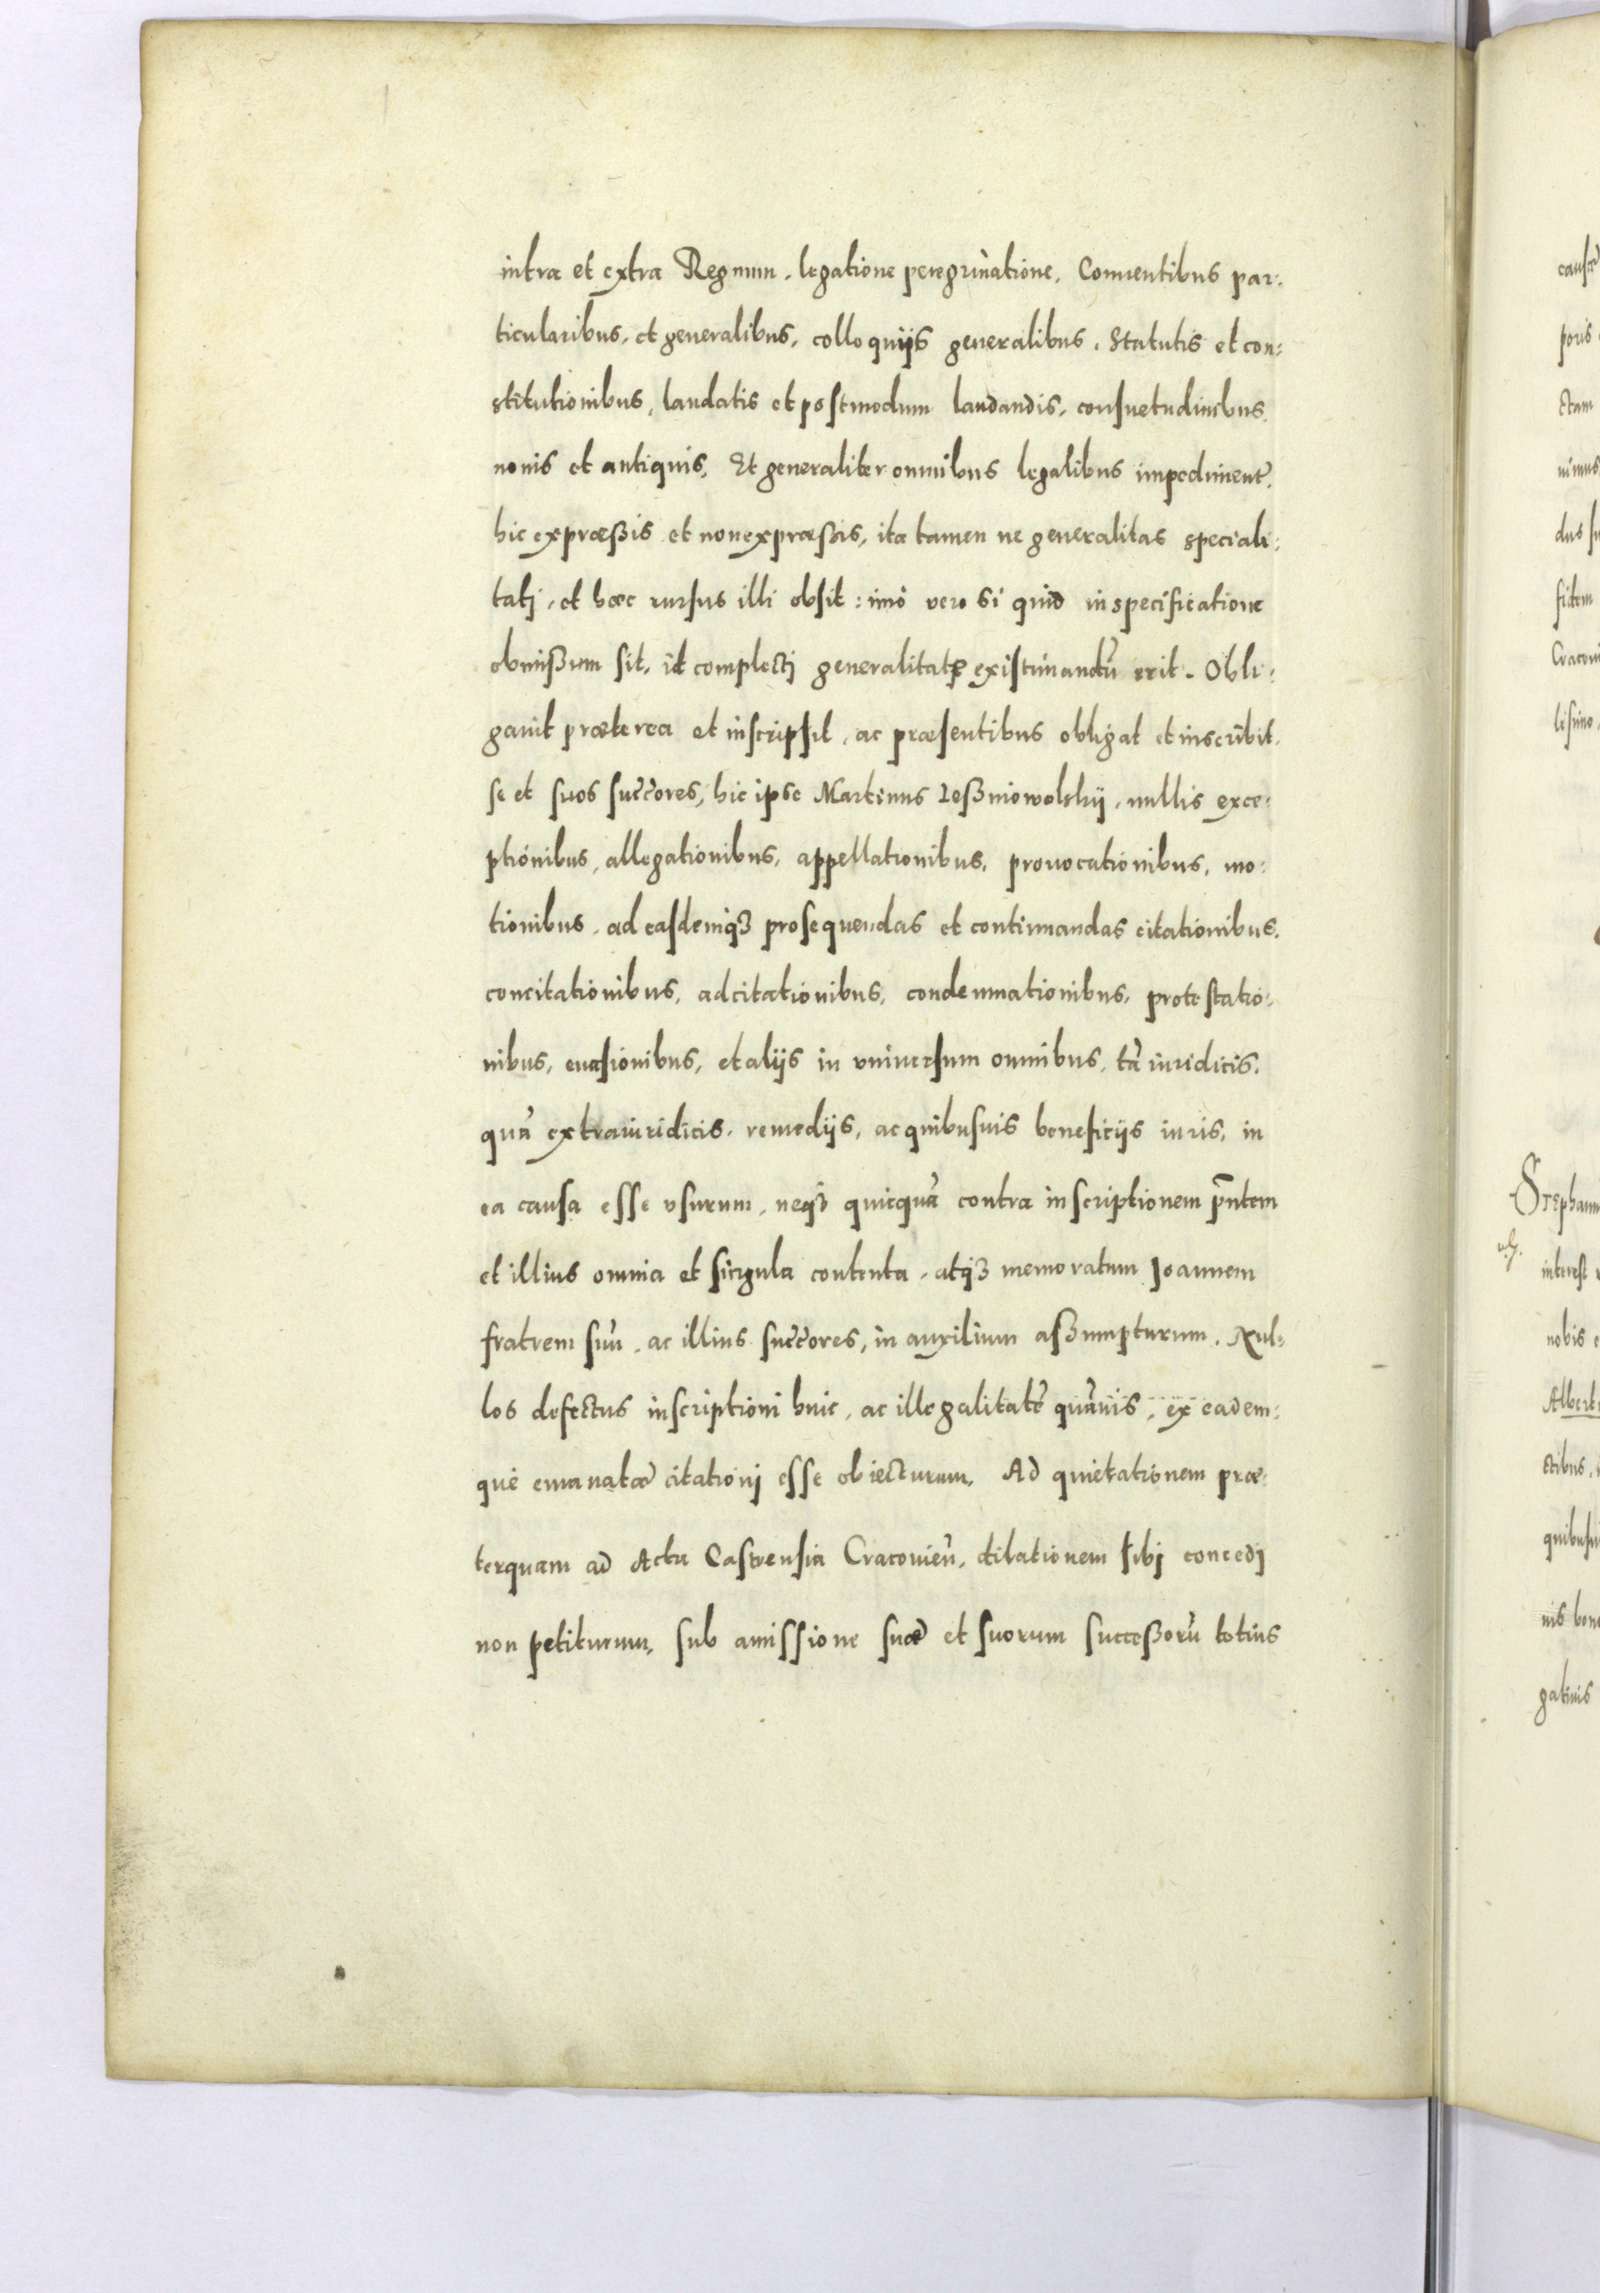 intra et extra Regnum, legatione peregrinatione, Conuentibus par:
ticularibus, et generalibus, colloquijs generalibus, Statutis et con:
stitutionibus, laudatis et postmodum laudandis, consuetudinibus,
nouis et antiquis, Et generaliter omnibus legalibus impediment̃,
hic expræßis et non expræssis, ita tamen ne generalitas speciali:
tatj, et hæc rursus illi obsit: imò vero si quid in specificatione
obmißum sit, id complectj generalitatẽ existimandũ erit. Obli:
gauit præterea et inscripsit, ac præsentibus obligat et inscribit,
se et suos succ̃ores, hic ipse Martinus Leßniowolskij, nullis exce:
ptionibus, allegationibus, appellationibus, prouocationibus, mo:
tionibus, ad easdemq₃ prosequendas et continuandas citationibus,
concitationibus, adcitationibus, condemnationibus, protestatio:
nibus, euasionibus, et alijs in vniuersum omnibus, tã iuridicis,
quã extraiuridicis, remedijs, ac quibusuis beneficijs iuris, in
ea causa esse vsurum, neq₃ quicquã contra inscriptionem p̃ntem
et illius omnia et singula contenta, atq₃ memoratum Joannem
fratrem suũ, ac illius succ̃ores, in auxilium aßumpturum. Nul:
los defectus inscriptioni huic, ac illegalitatẽ quãuis, ex eadem:
què emanatæ citationj esse obiecturum, Ad quietationem præ:
terquam ad Acta Castrensia Cracouieñ, dilationem sibj concedj
non petiturum, sub amissione suæ et suorum succeßorũ totius
Stephan
interest
nobis
Albert
ctibus,
quibusui
nis bon
gatiuis
caus
poris
ctam
nimus
dus su
fidem
Cracoui
lißimo